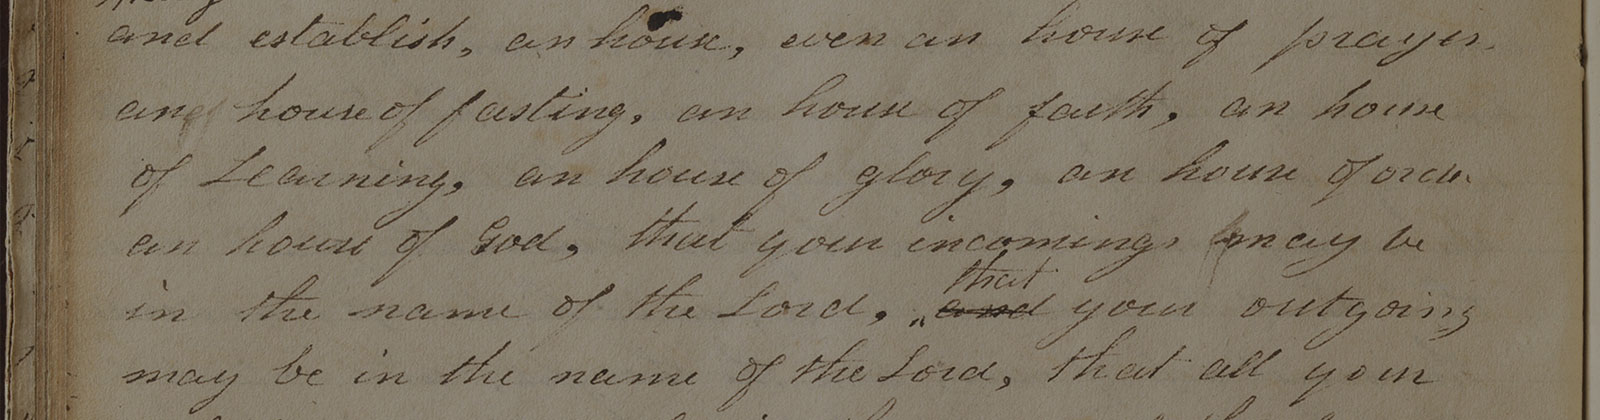 and establish, an house, even an house of prayer.
and house of fasting, an house of faith, an house
of Learning, an house of glory, an house of order.
an house of God, that your incomings may be
in the name of the Lord, that
and your outgoing
may be in the name of the Lord, that all your